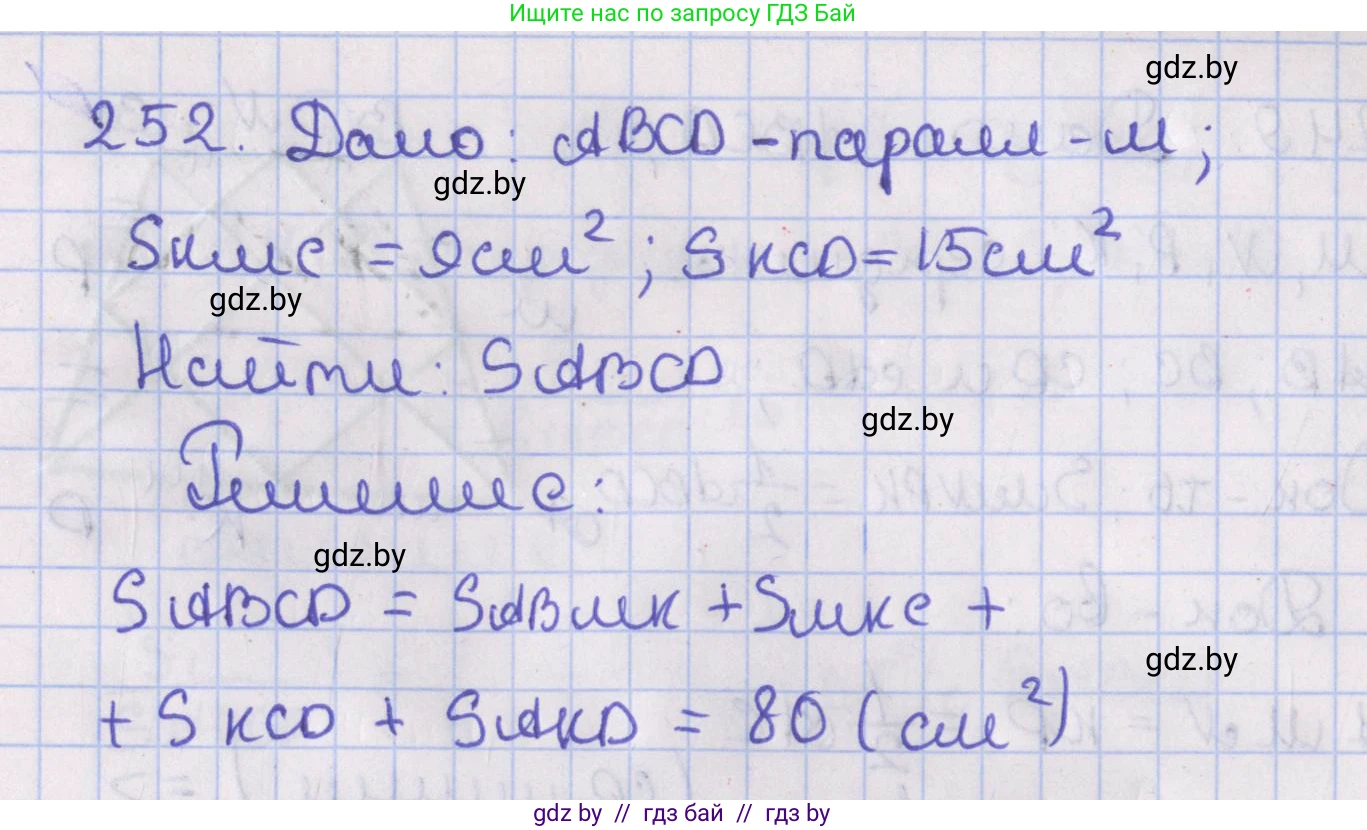 Ищите нас по запросу ГДЗ Бай
gdz.by
252. Дано: ABCD - паралл-м;
gdz.by
SKMC = 9см²; SKCD = 15см²
gdz.by
Найти: SABCD
gdz.by
Решение:
gdz.by
SABCD = SABMK + SMKC +
gdz.by
+ SKCD + SAKD = 80 (см²)
gdz.by // гдз бай // гдз by